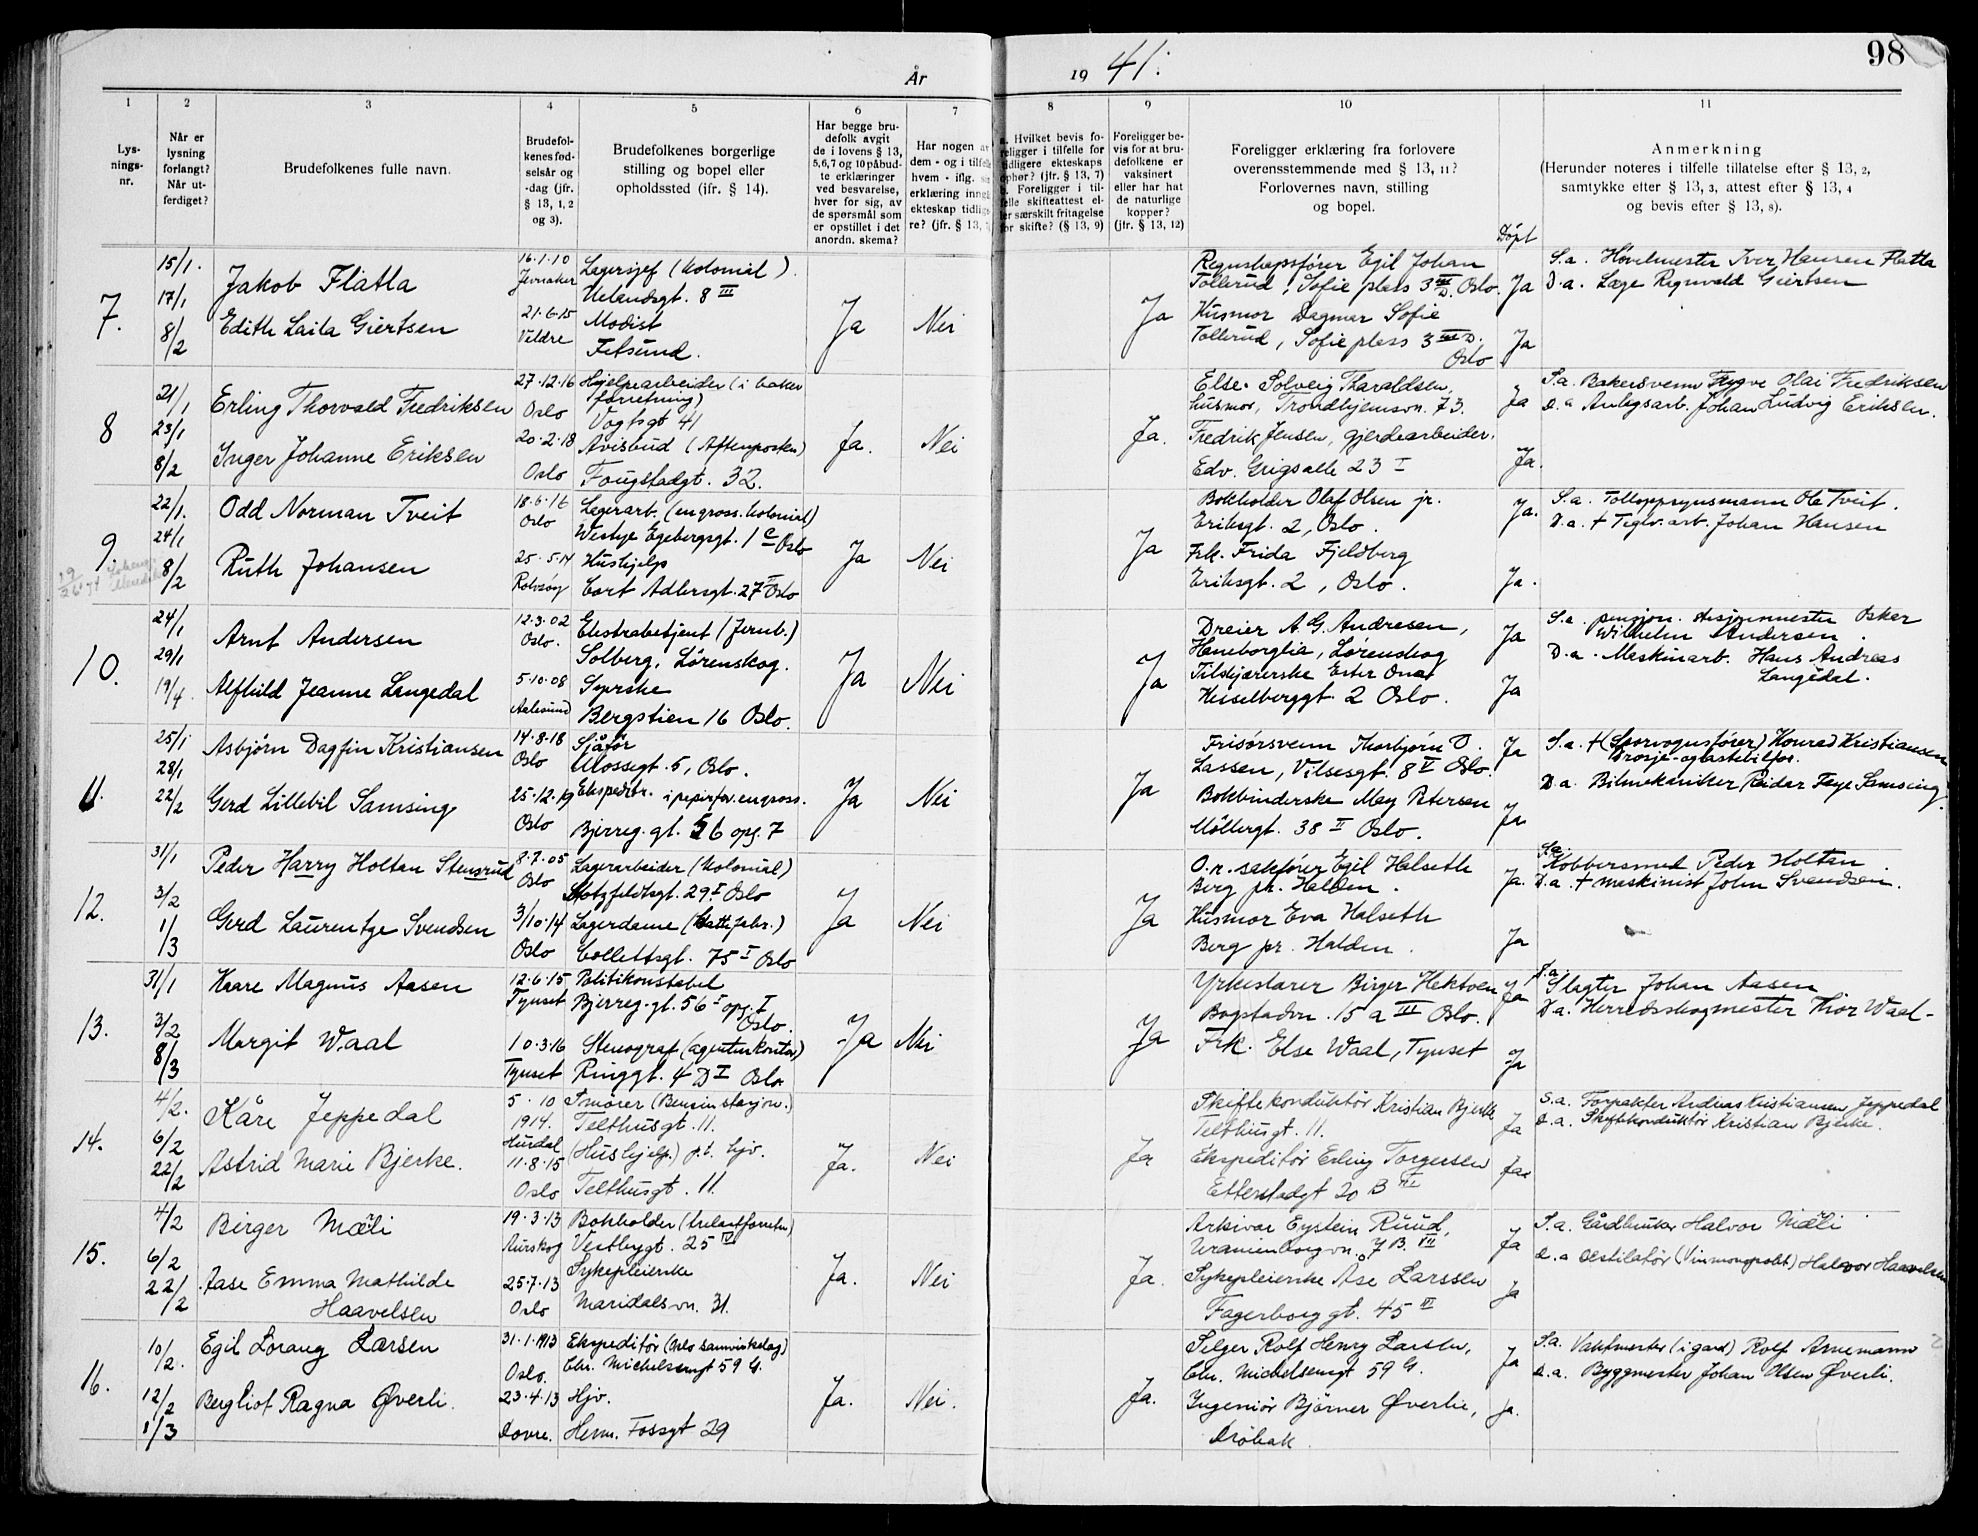 År
19 41.
98
1
2
3
4
5
6
7
8
9
10
11
Lys-
nings-
nr.
Når er
lysning
forlangt?
Når ut-
ferdiget?
Brudefolkenes fulle navn.
Brudefol-
kenes fød-
selsår og
-dag (jfr.
§ 13, 1, 2
og 3).
Brudefolkenes borgerlige
stilling og bopel eller
opholdssted (jfr. § 14).
Har begge bru-
defolk avgit
de i lovens § 13,
5,6,7 og 10 påbud-
te erklæringer
ved besvarelse,
hver for sig, av
de spørsmål som
er opstillet i det
anordn. skema?
Har nogen av
dem - og i tilfelle
hvem - iflg.
erklæring inngå
ekteskap tidlige
re? (jfr. § 13,
a. Hvilket bevis fo-
religger i tilfelle for
tidligere ekteskaps
ophør? (jfr. § 13, 7)
Foreligger i til-
felle skifteattest el-
ler særskilt fritagelse
for skifte? (§ 13, 9)
Foreligger be-
vis for at bru-
defolkene er
vaksinert
eller har hat
de naturlige
kopper?
(jfr. § 13, 12)
Foreligger erklæring fra forlovere
overensstemmende med § 13, 11?
Forlovernes navn, stilling
og bopel.
Døpt
Anmerkning
(Herunder noteres i tilfelle tillatelse efter § 13, 2,
samtykke efter § 13, 3, attest efter § 13, 4
og bevis efter § 13, 8).
7.
15/1.
17/1
8/2
Jakob Flatla
Edith Laila Giertsen
16.1.10
Jevnaker
21.6.15
Veldre
Lagersjef (Kolonial).
Uelandsgt. 8 III
Modist
Fetsund.
Ja
Nei
Ja
Regnskapsfører Egil Johan
Tollerud, Sofie plass 3 III D. Oslo.
Husmor Dagmar Sofie
Tollerud, Sofie plass 3 III D.
Oslo
Ja
Ja
S.a. Høvelmester Iver Hansen Flatla
D.a. Læge Ragnvald Giertsen
8
21/1
23/1
8/2
Erling Thorvald Fredriksen
Inger Johanne Eriksen
27.12.16
Oslo
20.2.18
Oslo
Hjelpearbeider (i baker
forretning)
Vogtsgt 41
Avisbud (Aftenposten)
Fougstadgt. 32.
Ja.
Nei
Ja.
Else Solveig Tharaldsen,
husmor, Trondhjemsvn. 73.
Fredrik Jensen, gjerdearbeider.
Edv. Grigsalle 23 I
Ja
Ja.
S.a. Bakersvenn Trygve Olai Fredriksen
D.a. Anlegsarb. Johan Ludvig Eriksen.
9.
22/1.
24/1
8/2
Odd Norman Tveit
Ruth Johansen
18.6.16
Oslo
25.5.14
Rolvsøy
Lagerarb. (engross. kolonial)
Westye Egebergsgt. 1 c Oslo
Hushjelp
Cort Adlersgt. 27 II Oslo
Ja
Nei
Ja
Bokholder Olaf Olsen jr.
Eriksgt. 2, Oslo.
Frk. Frida Fjeldberg
Eriksgt. 2, Oslo.
Ja.
Ja.
S.a. Tolloppsynsmann Ole Tveit.
D.a. + Teglv.arb. Johan Hansen
10.
24/1
29/1
19/4
Arnt Andersen
Alfhild Jeanne Langedal
12.3.02
Oslo.
5.10.08
Aalesund
Ekstrabetjent (Jernb.)
Solberg, Lørenskog.
Syerske
Bergstien 16 Oslo.
Ja
Nei
Ja
Dreier A.G. Andresen,
Haneborglia, Lørenskog
Tilskjærerske Ester Onar
Hesselberggt. 2 Oslo.
Ja
Ja
S.a. pensjon. stasjonmester Oskar
Wilhelm Andersen.
D.a. Maskinarb. Hans Andreas
Langedal.
11.
25/1
28/1
22/2
Asbjørn Dagfin Kristiansen
Gerd Lillebil Samsing
14.8.18
Oslo
25.12.19
Oslo
Sjåfør
Mossegt. 5, Oslo.
Ekspeditr. i papirfor. engross.
Bjerreg. gt. 56 opg. 7
Ja
Nei
Ja
Frisørsvenn Thorbjørn O.
Lassen, Vilsesgt. 8 V Oslo.
Bokbinderske May Petersen
Møllergt. 38 II Oslo.
Ja
Ja
S.a. + (Sporvognsfører) Konrad Kristiansen
Drosje- og lastebilfør.
D.a. Bilmekaniker Reidar Faye Samsing.
12.
31/1
3/2
1/3
Peder Harry Holtan Stensrud
Gerd Laurentze Svendsen
8.7.05
Oslo
3/10.14
Oslo
Lagerarbeider (Kolonial)
Motzfeldtsgt. 29 I Oslo
Lagerdame (Hattefabr.)
Collettsgt. 75 I Oslo
Ja
Nei
Ja
O.r. sakfører Egil Halseth
Berg pr. Halden.
Husmor Eva Halseth
Berg pr. Halden.
Ja.
Ja
S.a.
Kobbersmed Peder Holtan
D.a. + maskinist John Svendsen.
13.
31/1
3/2
8/3
Kaare Magnus Aasen
Margit Waal
12.6.15
Tynset
10.3.16
Tynset
Politikonstabel
Bjerreg. gt. 56 I opg. I
Oslo.
Stenograf (agenturkontor)
Ringgt. 4 D I Oslo
Ja
Nei
Ja
Yrkeslærer Birger Hektoen
Bogstadvn. 15 a III Oslo.
Frk. Else Waal, Tynset
Ja
Ja
S.a.
Slagter Johan Aasen
D.a. Herredsskogmester Thor Waal-
14.
4/2.
6/2
22/2
Kåre Jeppedal
Astrid Marie Bjerke.
5.10
1914.
Hurdal
11.8.15
Oslo
Smører (Bensinstasjon.)
Telthusgt. 11.
(Hushjelp.) p.t. hjv.
Telthusgt. 11.
Ja.
Nei
Ja
Skiftekonduktør Kristian Bjerke
Telthusgt. 11.
Ekspeditør Erling Torgersen
Etterstadgt 20 B III
Ja
Ja
S.a. Forpakter Andreas Kristiansen Jeppedal
D.a. Skiftekonduktør Kristian Bjerke.
15.
4/2
6/2
22/2
Birger Mæli
Aase Emma Mathilde
Haavelsen
19.3.13
Aurskog
25.7.13
Oslo
Bokholder (trelastforretn)
Vestbygt. 25 IV
Sykepleierske
Maridalsvn. 31.
Ja.
Nei
Ja.
Arkivar Eystein Ruud,
Uranienborgvn. 7 B. III
Sykepleierske Åse Larssen
Fagerborggt. 45 III
Ja
Ja
S.a. Gårdbruker Halvor Mæli
D.a Destilatør (Vinmonopolet) Halvor Haavelsen
16.
10/2.
12/2
1/3
Egil Lorang Larsen
Bergliot Ragna Øverli.
31.1.1913
Oslo.
23.4.13
Dovre.
Ekspeditør (Oslo samvirkelag)
Chr. Michelsensgt 59 G.
Hjv.
Herm. Fossgt 29
Ja.
Nei.
Ja.
Selger Rolf Henry Larsen,
Chr. Michelsensgt 59 G.
Ingeniør Bjørner Øverlie,
Drøbak.
Ja
Ja.
S.a. Vaktmester (i gard) Rolf Arnemann
D.a. Byggmester Johan Olsen Øverli.